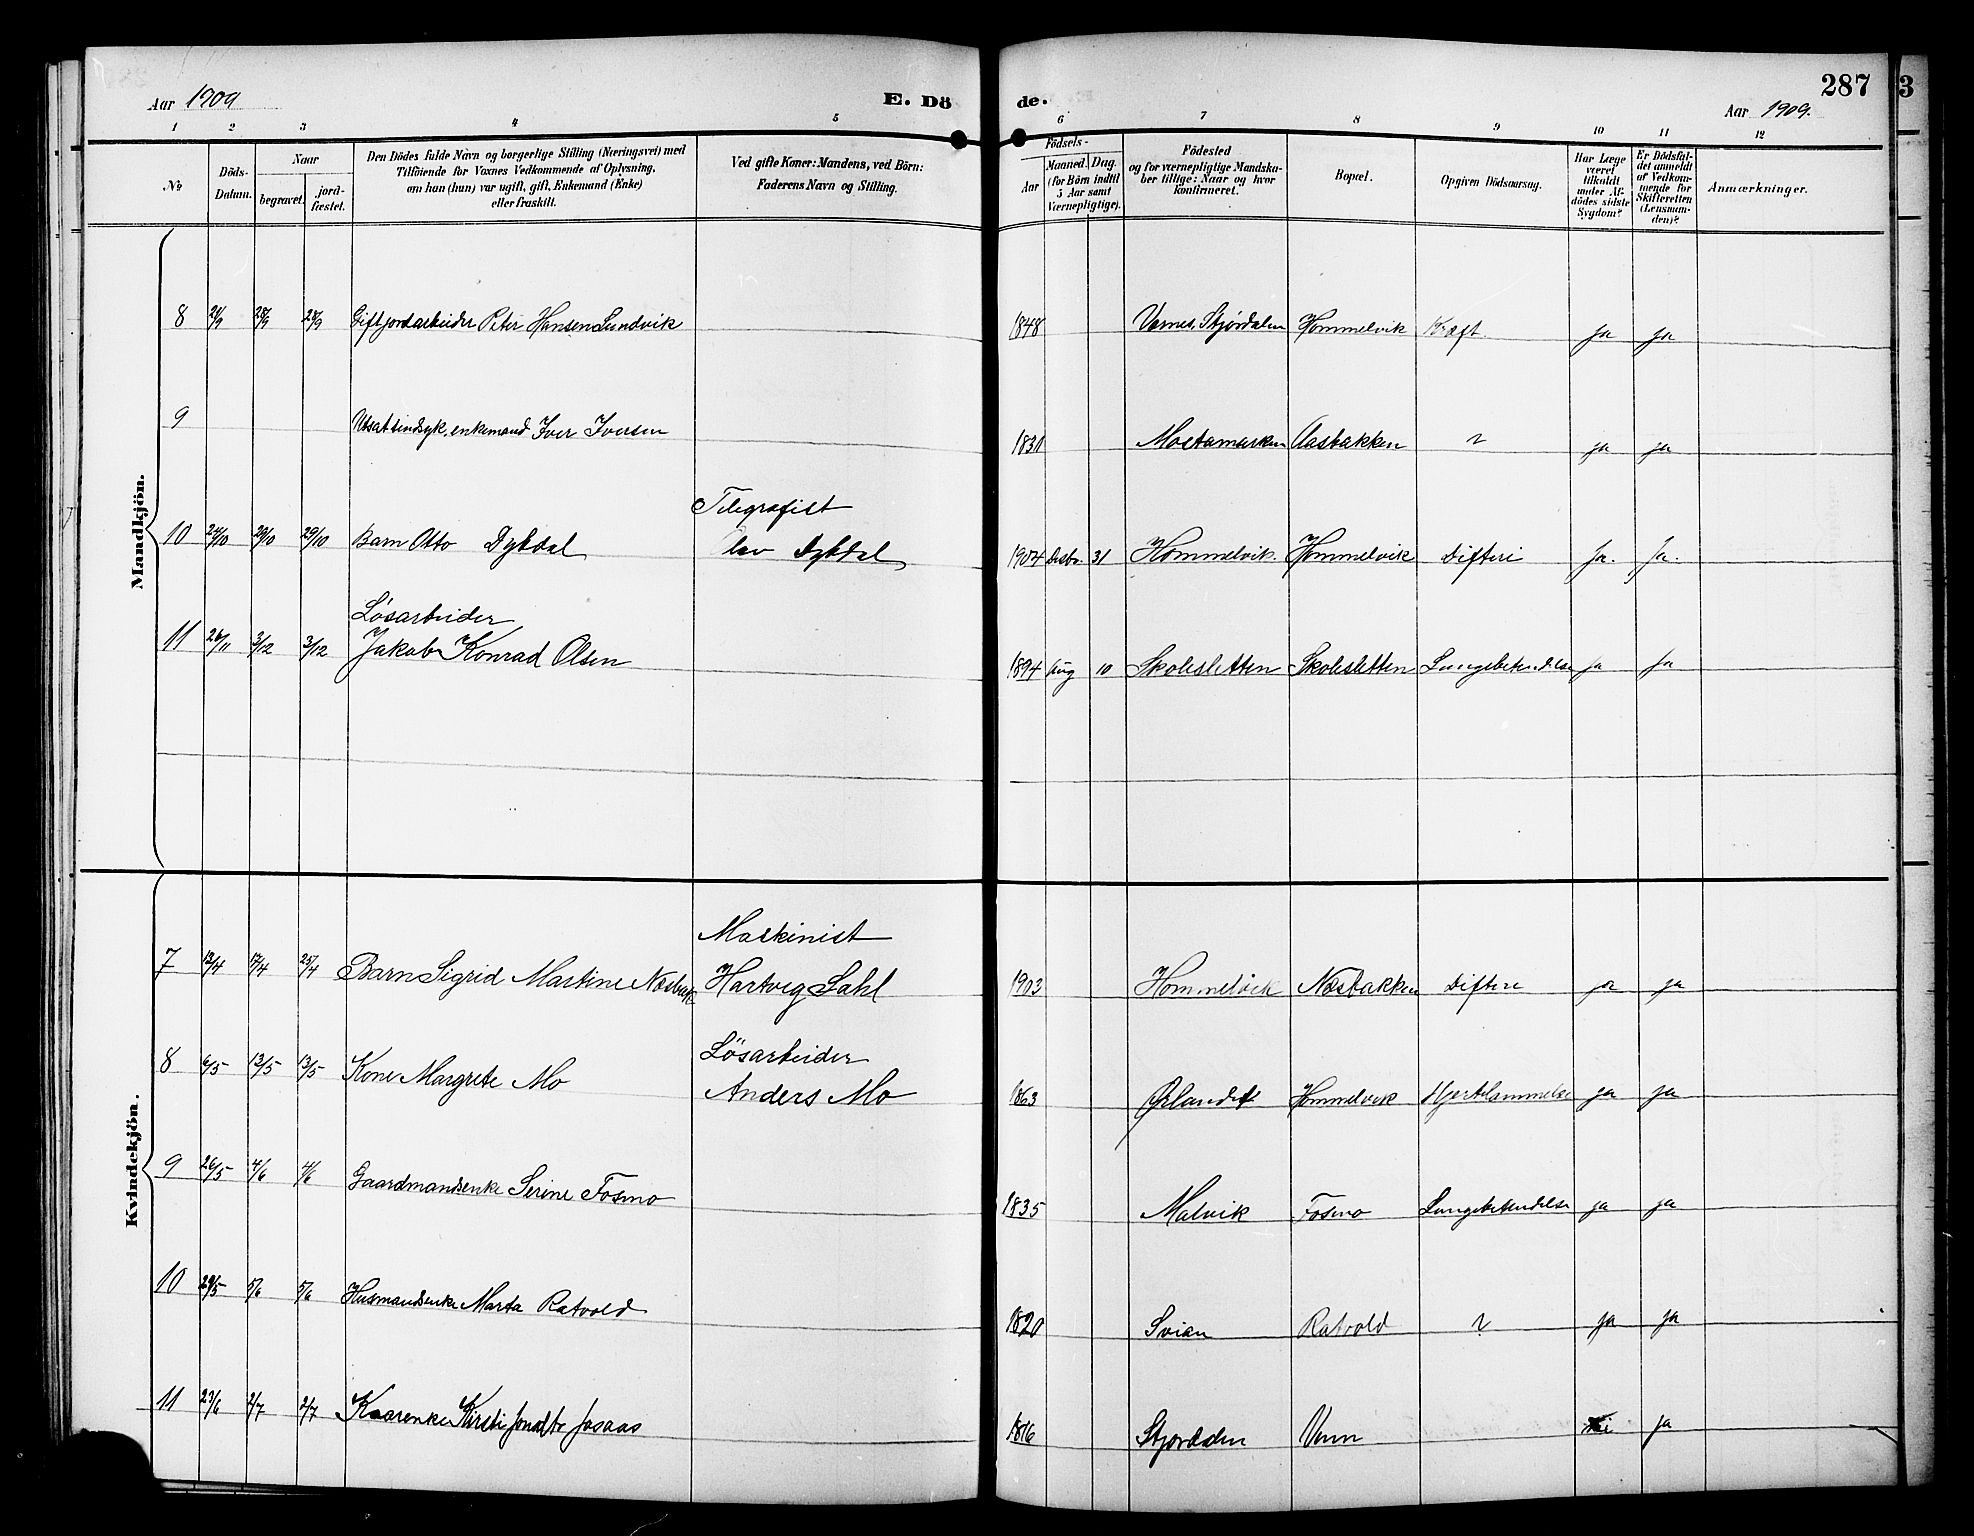 Aar 1909
E. Dö
de.
287
Aar 1909.
1 2 3 4 5 6 7 8 9 10 11 12
No
Döds-
Datum.
Naar
begravet.
jord-
fæstet.
Den Dödes fulde Navn og borgerlige Stilling (Næringsvei) med
Tilföiende for Voxnes Vedkommende af Oplysning,
om han (hun) var ugift, gift, Enkemand (Enke)
eller fraskilt.
Ved gifte Koner: Mandens, ved Börn:
Faderens Navn og Stilling.
Födsels-
Aar
Maaned.
Dag.
(for Börn indtil
5 Aar samt
Værnepligtige).
Födested
og for værnepligtige Mandska-
ber tillige: Naar og hvor
konfirmeret.
Bopæl.
Opgiven Dödsaarsag.
Har Læge
været
tilkaldt
under Af-
dödes sidste
Sygdom?
Er Dödsfal-
det anmeldt
af Vedkom-
mende for
Skifteretten
(Lensman-
den)?
Anmærkninger.
Mandkjön.
8 28/9 28/9 Gift jordarbeider Peter Hansen Sundvik 1848 Værnes, Stjørdalen Hommelvik Kræft. ja ja
9 sindsyk, enkemand Iver Iversen 1831 Mostamarken Aasbakken ? ja ja
10 24/10 29/10 29/10 Barn Otto Dybdal
Telegrafist
Olav Dybdal
1904 Desbr. 31 Hommelvik. Hommelvik Difteri Ja. Ja.
11 26/11 3/12 3/12
Løsarbeider
Jakob Konrad Olsen
1894 Aug 10 Skolesletten Skolesletten Lungebetendelse ja Ja
Kvindekjön.
7 13/4 17/4 25/4 Barn Sigrid Martine Næsbak
Maskinist
Hartvig Sahl
1903 Hommelvik Næsbakken Difteri ja ja
8 6/5 13/5 13/5 Kone Margrete Mo
Løsarbeider
Anders Mo
1863 Ørlandet Hommelvik Hjertelammelse ja ja
9 26/5 4/6 4/6 Gaardmandsenke Serine Fosmo 1835 Malvik Fosmo Lungebetendelse ja ja
10 29/5 5/6 5/6 Husmandsenke Marta Ratvold 1820 Svian Ratvold ? ja ja
11 23/6 2/7 2/7 Kaarenke Kirsti Jonsdtr Josaas 1816 Stjordalen Venn ja
3